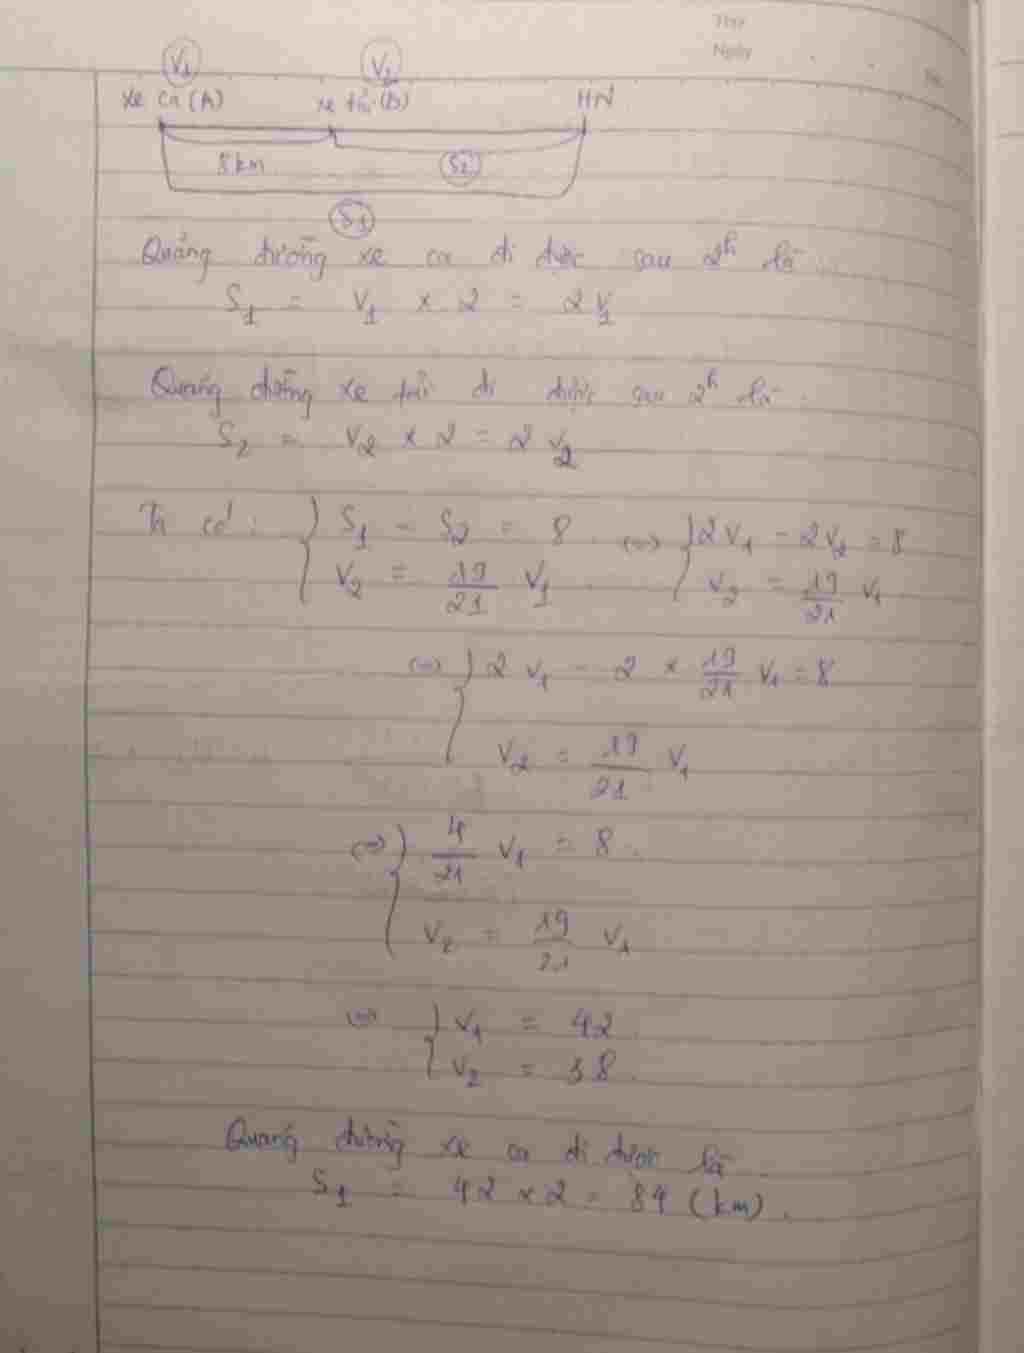 Thứ
Ngày
V1 V2
xe ca (A) xe tải (B) HN
8 km S2
S1
Quãng đường xe ca đi được sau 2h là
S1 = V1 x 2 = 2 V1
Quãng đường xe tải đi được sau 2h là
S2 = V2 x 2 = 2 V2
Ta có: { S1 - S2 = 8 <=> { 2V1 - 2V2 = 8
V2 = 19/21 V1 V2 = 19/21 V1
<=> { 2 V1 - 2 x 19/21 V1 = 8
V2 = 19/21 V1
<=> { 4/21 V1 = 8
V2 = 19/21 V1
<=> { V1 = 42
V2 = 38
Quãng đường xe ca đi được là
S1 = 42 x 2 = 84 (km).